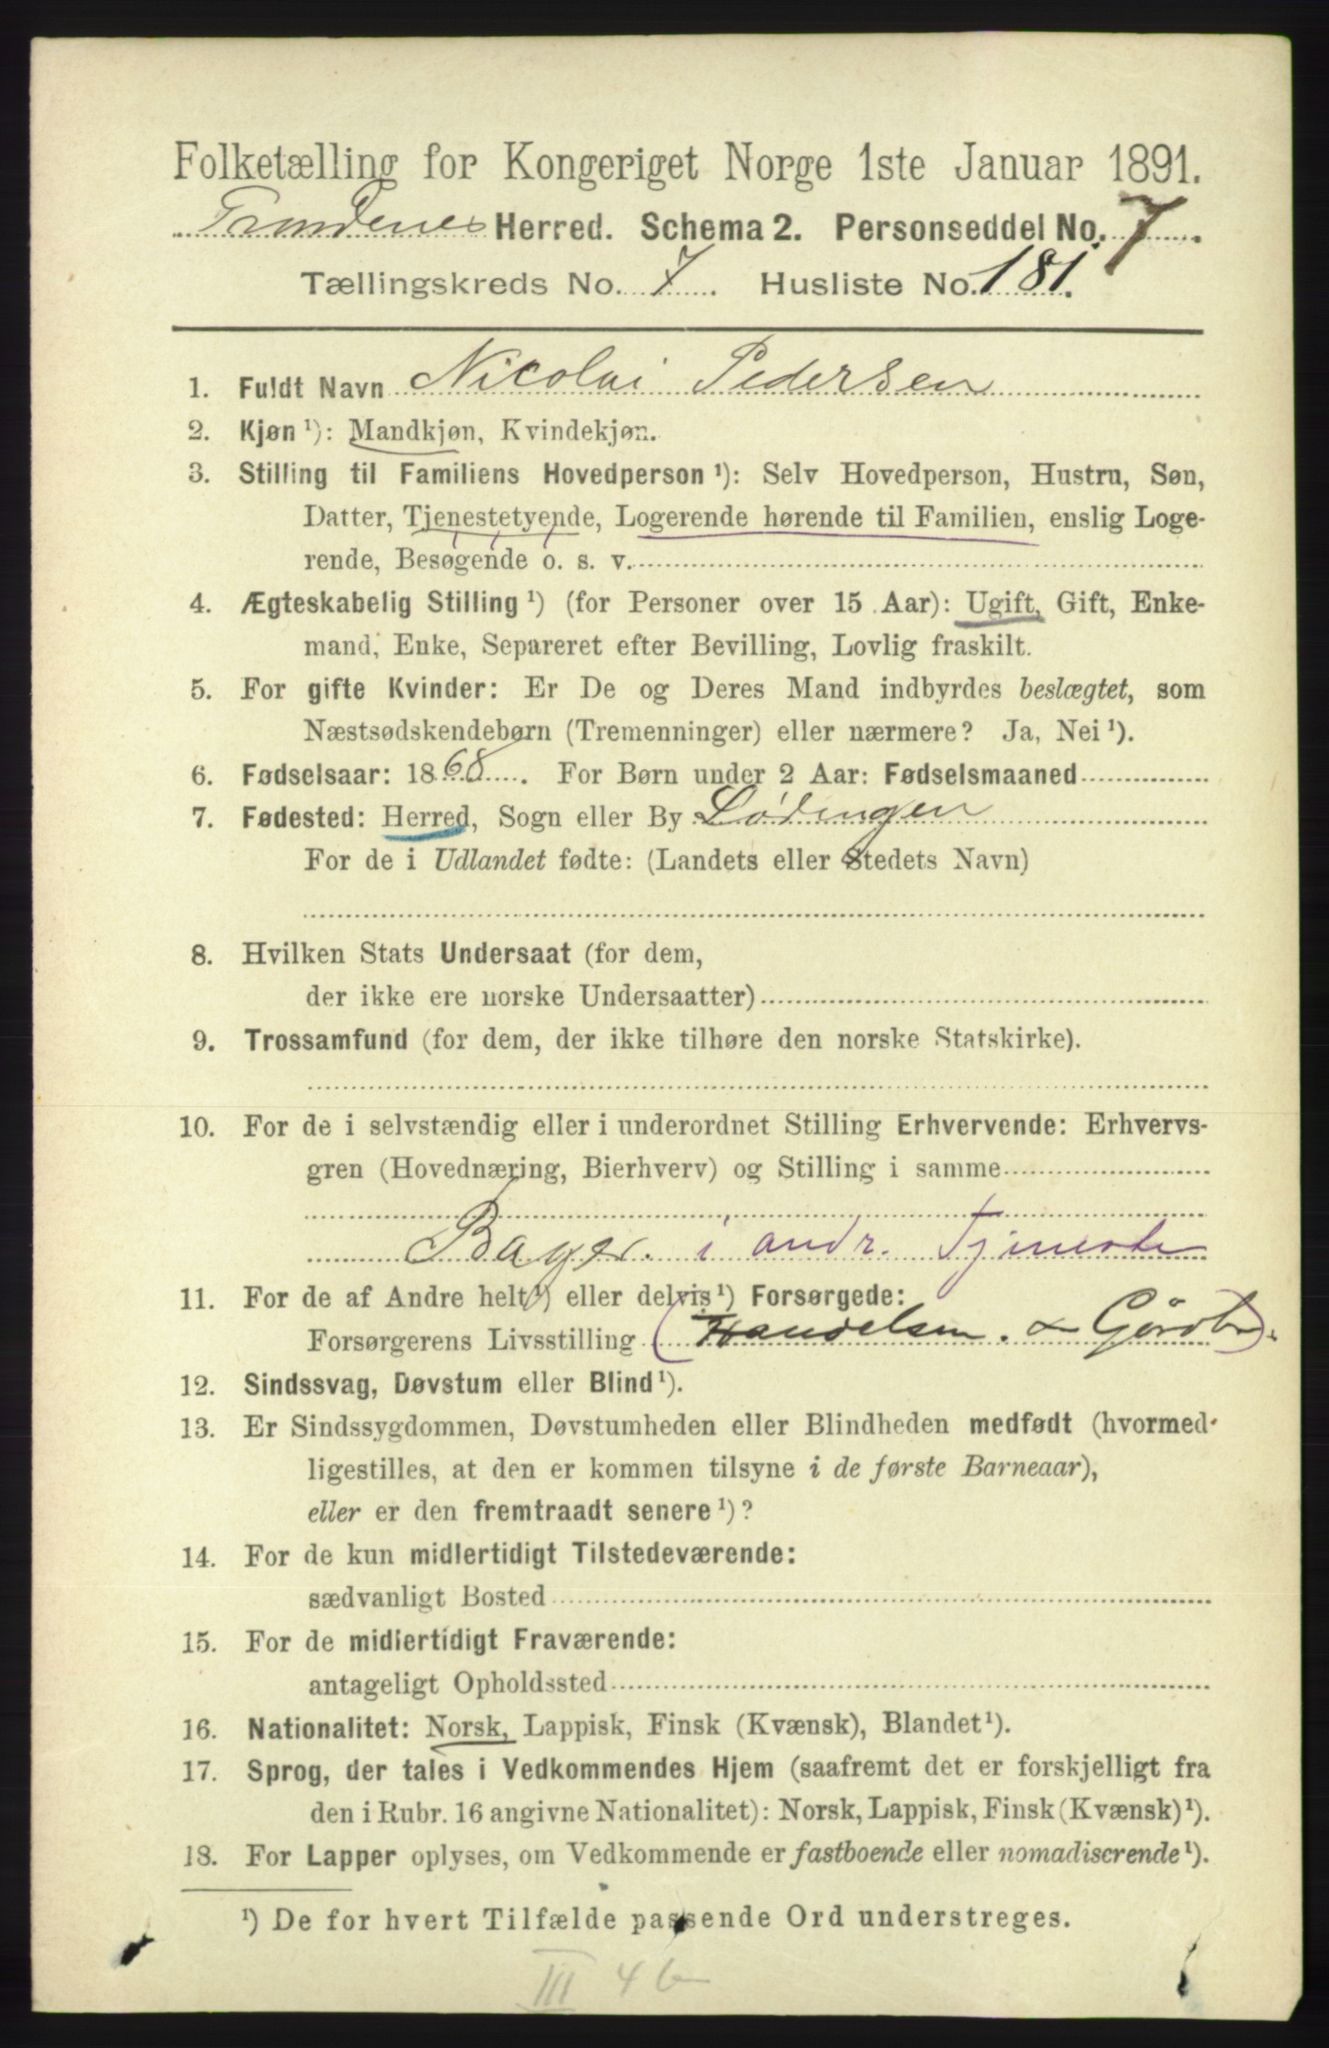 Folketælling for Kongeriget Norge 1ste Januar 1891.
Trondenes Herred. Schema 2. Personseddel No. 7.
Tællingskreds No. 7. Husliste No. 181.
1. Fuldt Navn Nicolai Pedersen
2. Kjøn ¹): Mandkjøn, Kvindekjøn.
3. Stilling til Familiens Hovedperson ¹): Selv Hovedperson, Hustru, Søn,
Datter, Tjenestetyende, Logerende hørende til Familien, enslig Loge-
rende, Besøgende o. s. v.
4. Ægteskabelig Stilling ¹) (for Personer over 15 Aar): Ugift, Gift, Enke-
mand, Enke, Separeret efter Bevilling, Lovlig fraskilt.
5. For gifte Kvinder: Er De og Deres Mand indbyrdes beslægtet, som
Næstsødskendebørn (Tremenninger) eller nærmere? Ja, Nei ¹).
6. Fødselsaar: 1868. For Børn under 2 Aar: Fødselsmaaned
7. Fødested: Herred, Sogn eller By Lødingen
For de i Udlandet fødte: (Landets eller Stedets Navn)
8. Hvilken Stats Undersaat (for dem,
der ikke ere norske Undersaatter)
9. Trossamfund (for dem, der ikke tilhøre den norske Statskirke).
10. For de i selvstændig eller i underordnet Stilling Erhvervende: Erhvervs-
gren (Hovednæring, Bierhverv) og Stilling i samme
Bager. i andr. Tjeneste
11. For de af Andre helt ¹) eller delvis ¹) Forsørgede:
Forsørgerens Livsstilling (Handelsm. & Gårdbr).
12. Sindssvag, Døvstum eller Blind ¹).
13. Er Sindssygdommen, Døvstumheden eller Blindheden medfødt (hvormed-
ligestilles, at den er kommen tilsyne i de første Barneaar),
eller er den fremtraadt senere ¹)?
14. For de kun midlertidigt Tilstedeværende:
sædvanligt Bosted
15. For de midlertidigt Fraværende:
antageligt Opholdssted
16. Nationalitet: Norsk, Lappisk, Finsk (Kvænsk), Blandet ¹).
17. Sprog, der tales i Vedkommendes Hjem (saafremt det er forskjelligt fra
den i Rubr. 16 angivne Nationalitet): Norsk, Lappisk, Finsk (Kvænsk) ¹).
18. For Lapper oplyses, om Vedkommende er fastboende eller nomadiserende ¹).
¹) De for hvert Tilfælde passende Ord understreges.
III 4 b